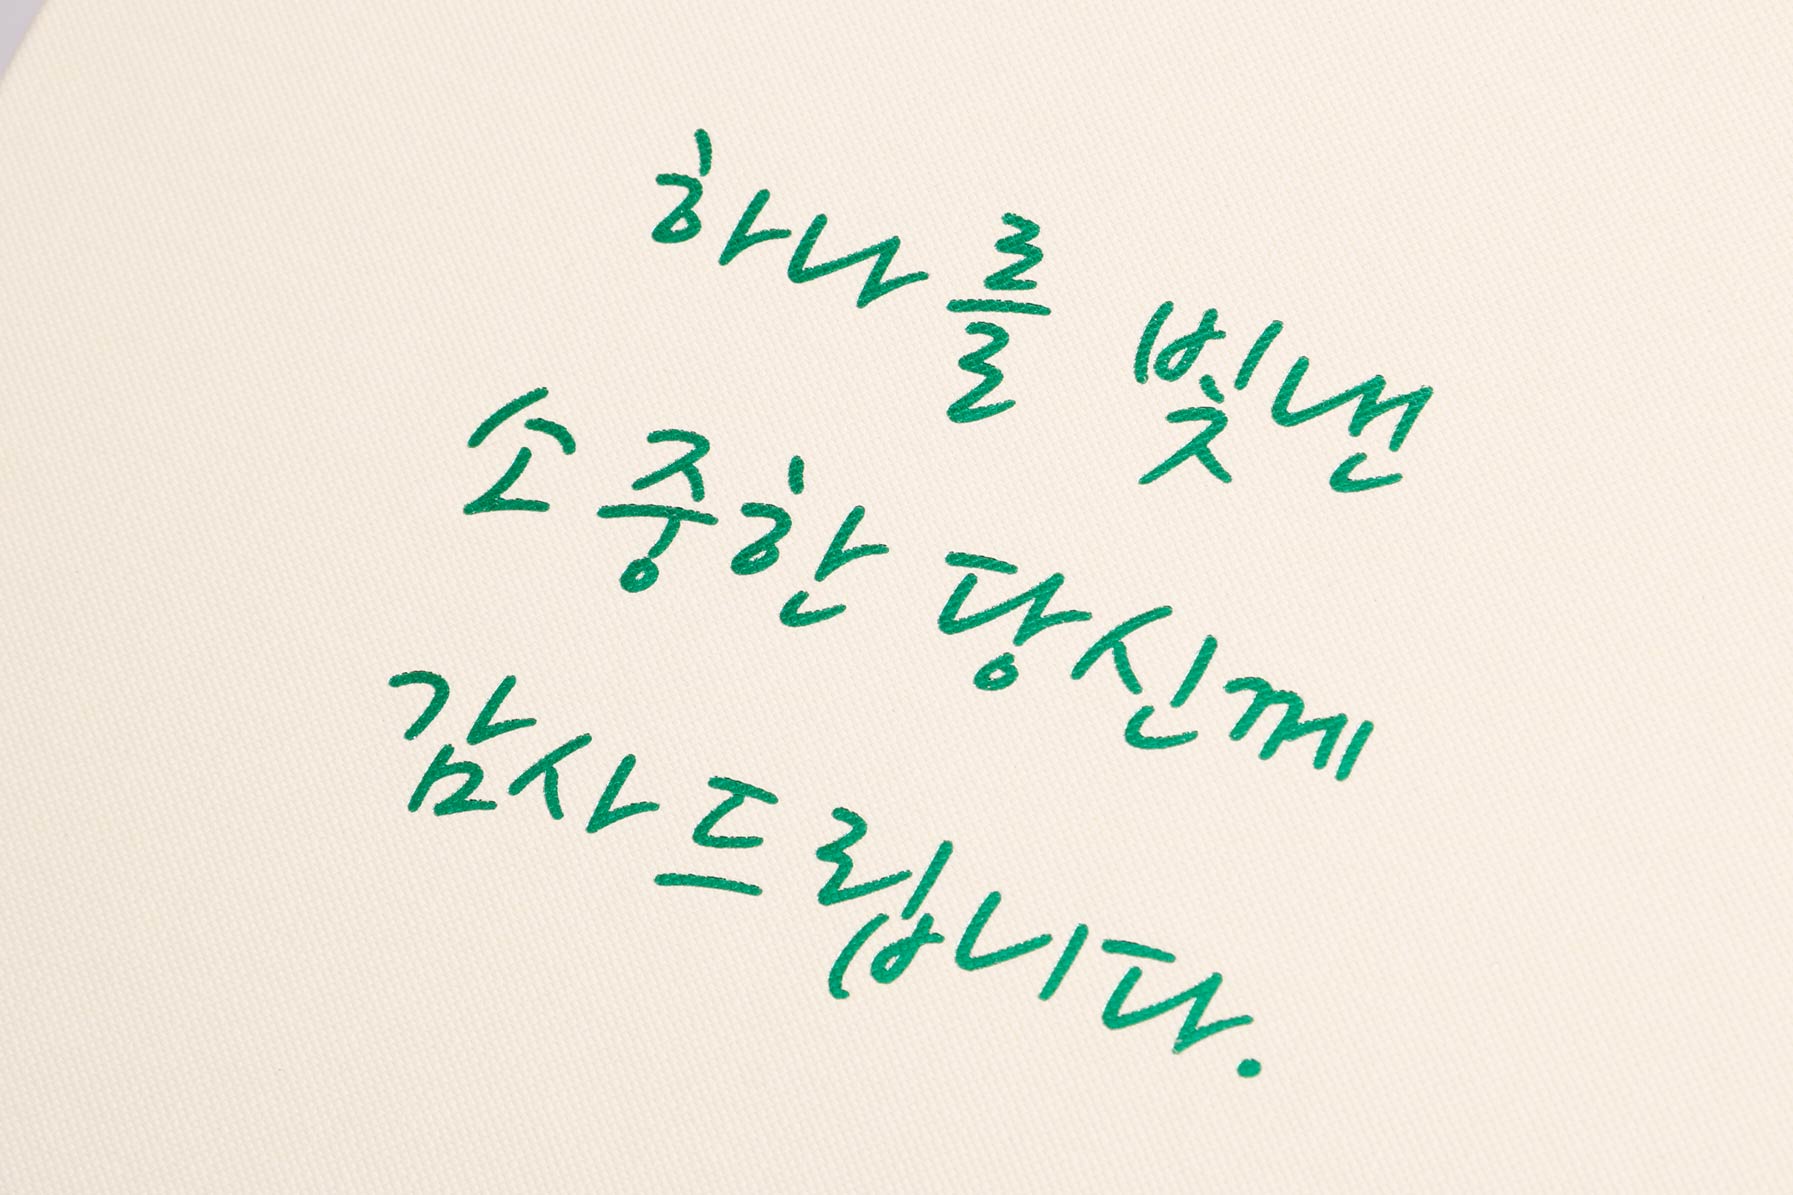 하나를 빛낸
소중한 당신께
감사드립니다.